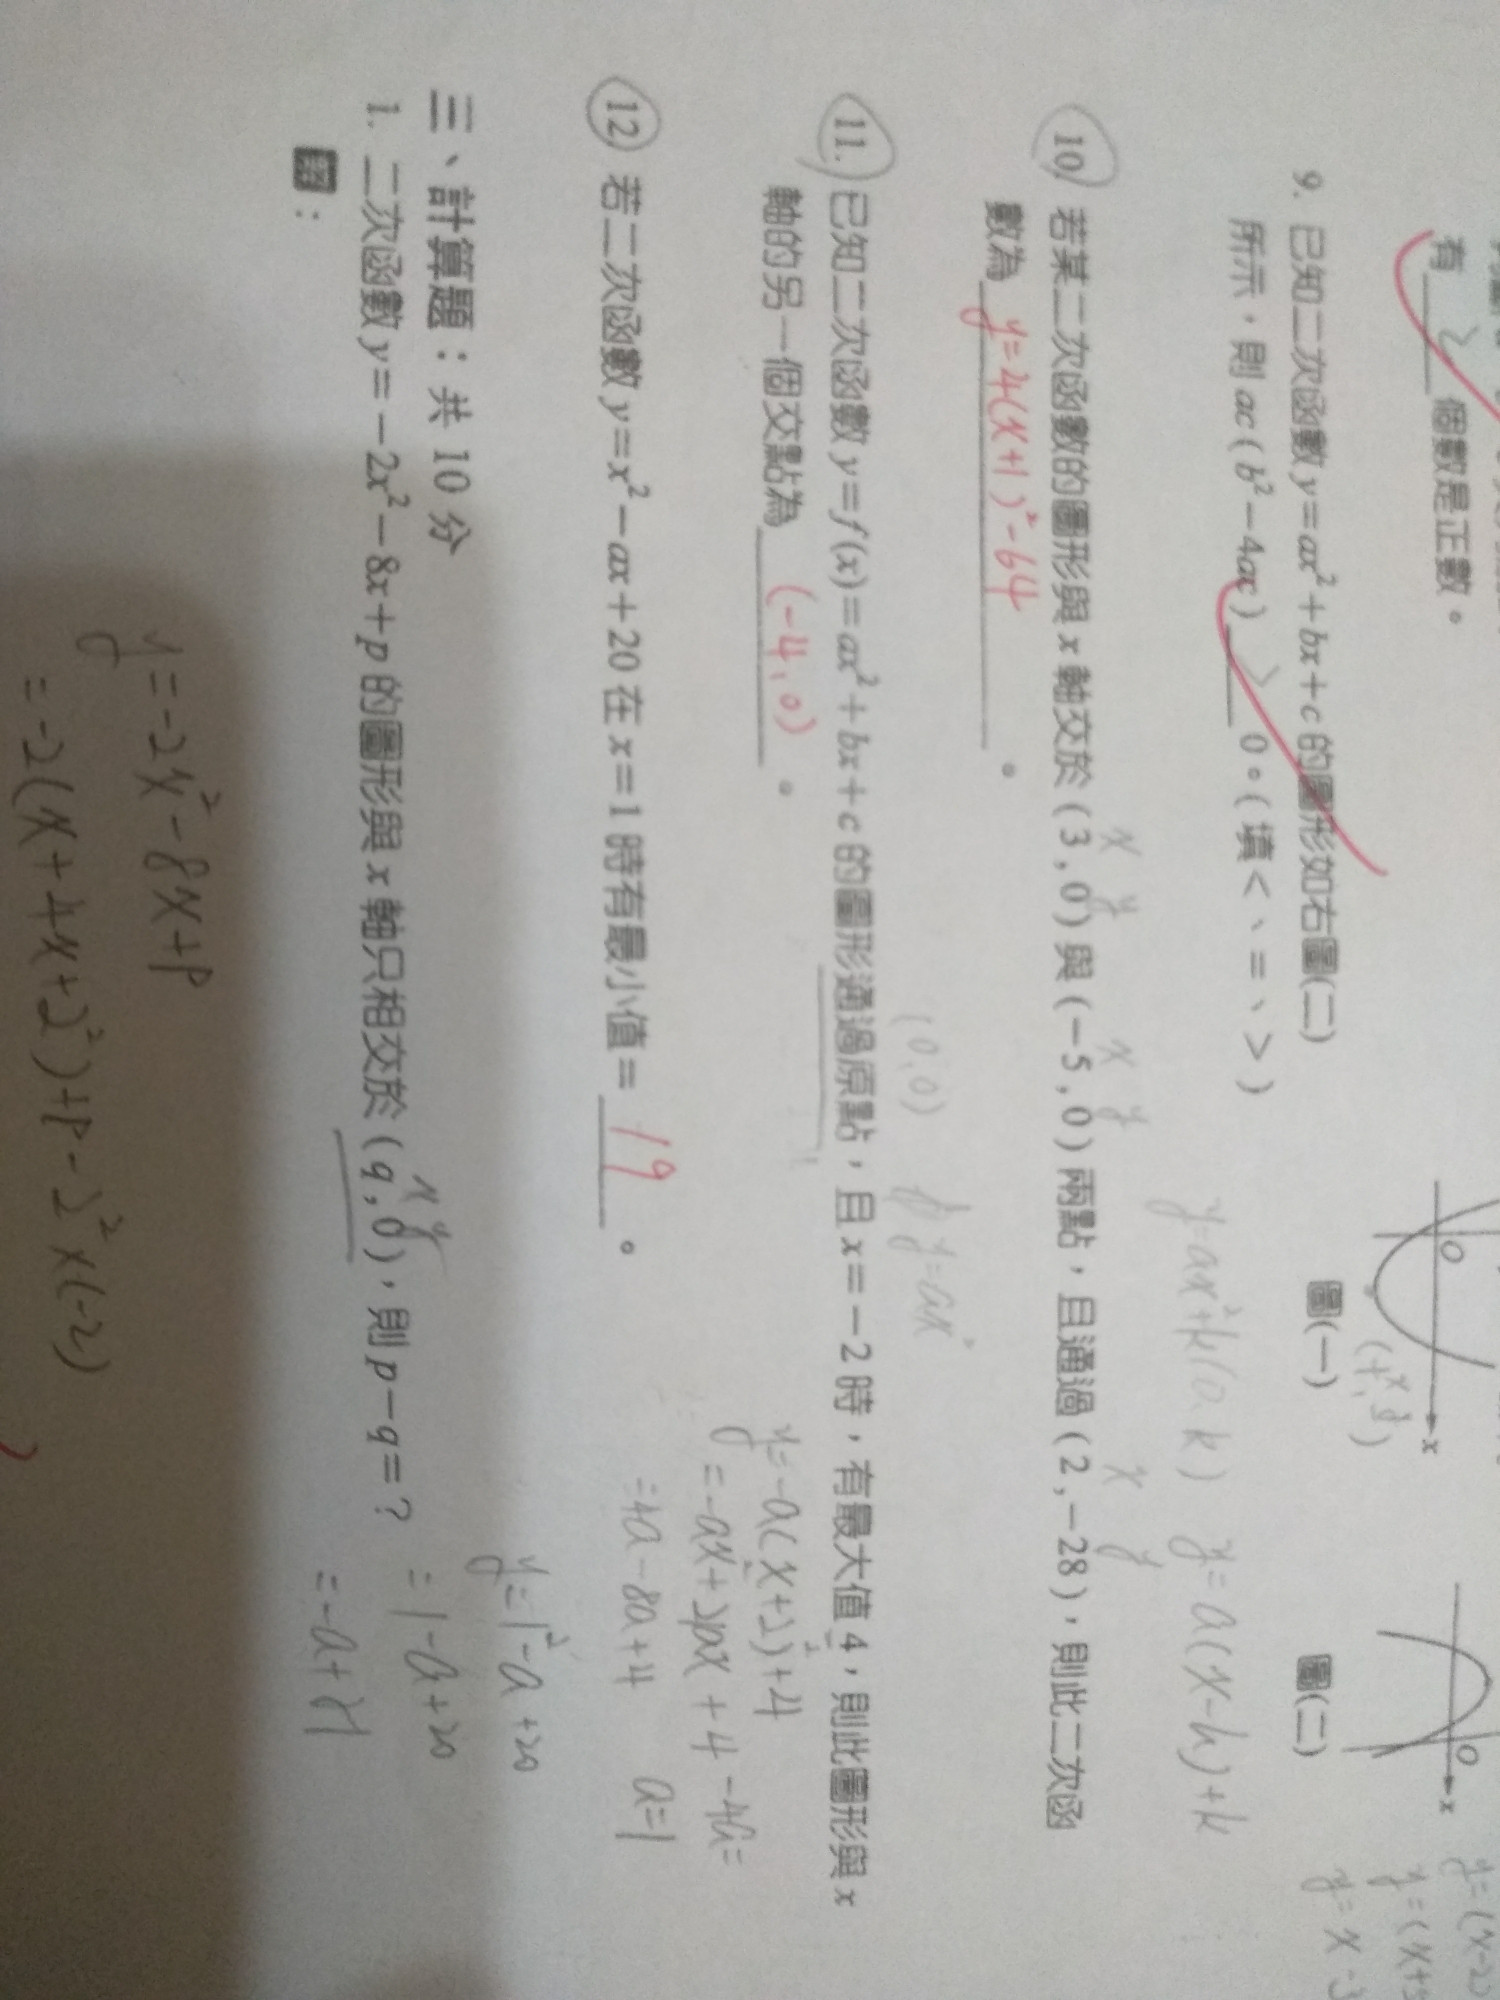 有 2 個數是正數。
9. 已知二次函數 y=ax²+bx+c 的圖形如右圖(二)
所示，則 ac(b²-4ac) > 0。(填<、=、>)
O
x
圖(一)
O
x
圖(二)
y=ax²+k(0,k) y=a(x-h)+k
x y x y x y
10. 若某二次函數的圖形與 x 軸交於(3,0)與(-5,0)兩點，且通過(2,-28)，則此二次函
數為 y=4(x+1)²-64 。
(0,0) y=ax²
11. 已知二次函數 y=f(x)=ax²+bx+c 的圖形通過原點，且 x=-2 時，有最大值 4，則此圖形與 x
軸的另一個交點為 (-4,0) 。
y=-a(x+2)²+4
=4a-8a+4 a=1
12. 若二次函數 y=x²-ax+20 在 x=1 時有最小值= 19 。
y=1²-a+20
=1-a+20
=-a+21
三、計算題：共 10 分
x y
1. 二次函數 y=-2x²-8x+p 的圖形與 x 軸只相交於(q,0)，則 p-q=？
：
y=-2x²-8x+p
=-2(x+4x+2²)+p-2²x(-2)